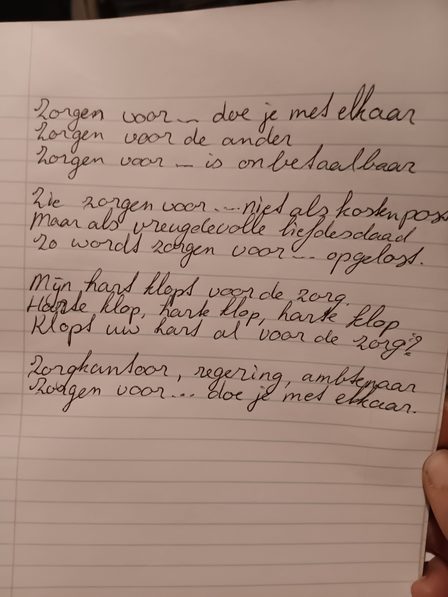 Zorgen voor ... doe je met elkaar
Zorgen voor de ander
Zorgen voor ... is onbetaalbaar
Zie zorgen voor ... niet als kostenpost
Maar als vreugdevolle liefdesdaad
Zo wordt zorgen voor ... opgelost.
Mijn hart klopt voor de zorg.
Harte klop, harte klop, harte klop
Klopt uw hart al voor de zorg?
Zorgkantoor, regering, ambtenaar
Zorgen voor ... doe je met elkaar.